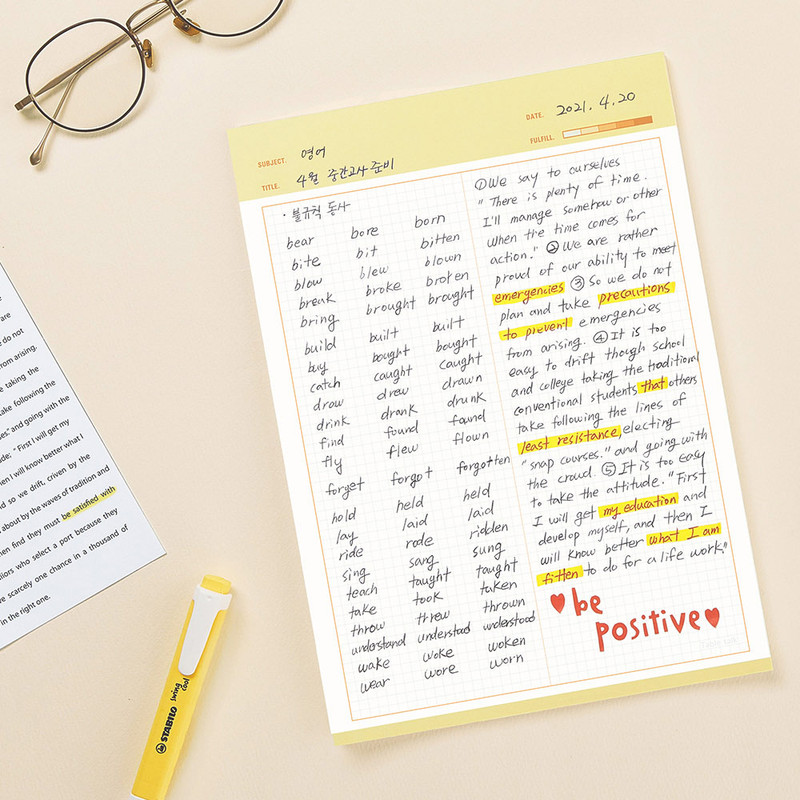 SUBJECT. 영어
DATE. 2021. 4. 20
TITLE. 4월 중간고사 준비
FULFILL.
· 불규칙 동사
bear bore born
bite bit bitten
blow blew blown
break broke broken
bring brought brought
build built built
buy bought bought
catch caught caught
draw drew drawn
drink drank drunk
find found found
fly flew flown
forget forgot forgotten
hold held held
lay laid laid
ride rode ridden
sing sang sung
teach taught taught
take took taken
throw threw thrown
understand understood understood
wake woke woken
wear wore worn
①We say to ourselves
"There is plenty of time.
I'll manage somehow or other
when the time comes for
action." ② We are rather
proud of our ability to meet
emergencies ③ So we do not
plan and take precautions
to prevent emergencies
from arising. ④It is too
easy to drift though school
and college taking the traditional
conventional students that others
take following the lines of
least resistance, electing
"snap courses." and going with
the crowd. ⑤It is too easy
to take the attitude. "First
I will get my education and
develop myself, and then I
will know better what I am
fitten to do for a life work."
be
positive
are
do not
from arising.
taking the
ake following the
es," and going with the
de; "First I will get my
en I will know better what I
d so we drift, driven by the
about by the waves of tradition and
en find they must be satisfied with
ilors who select a port because they
e scarcely one chance in a thousand of
in the right one.
STABILO swing cool